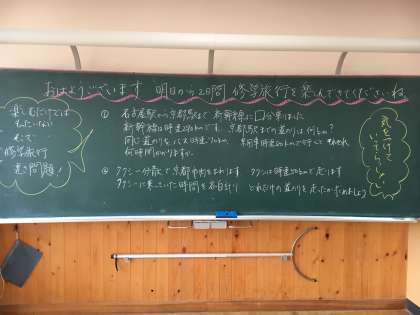 おはようございます 明日から2日間 修学旅行を楽しんできてくださいね。
楽しむだけでは
もったいない
そこで
修学旅行
算数問題!
① 名古屋駅から京都駅まで 新幹線に 分乗りました
新幹線は時速 kmです。京都駅までの道のりは何kmか?
同じ道のりを バス 時速 km
何時間かかりますか。
② タクシー分散で京都市内をまわります タクシーは時速 kmで走ります
タクシーに乗っていた時間を 各自計り どれだけの道のりを走ったか求めましょう
気をつけて
いってらっしゃい